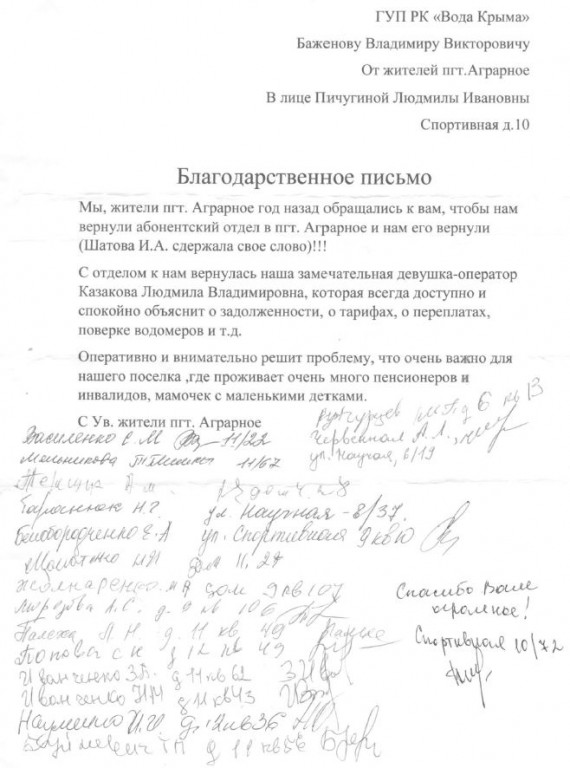 ГУП РК «Вода Крыма»
Баженову Владимиру Викторовичу
От жителей пгт.Аграрное
В лице Пичугиной Людмилы Ивановны
Спортивная д.10
Благодарственное письмо
Мы, жители пгт. Аграрное год назад обращались к вам, чтобы нам
вернули абонентский отдел в пгт. Аграрное и нам его вернули
(Шатова И.А. сдержала свое слово)!!!
С отделом к нам вернулась наша замечательная девушка-оператор
Казакова Людмила Владимировна, которая всегда доступно и
спокойно объяснит о задолженности, о тарифах, о переплатах,
поверке водомеров и т.д.
Оперативно и внимательно решит проблему, что очень важно для
нашего поселка ,где проживает очень много пенсионеров и
инвалидов, мамочек с маленькими детками.
С Ув. жители пгт. Аграрное
д 6 кв 13
Василенко С.М 11/22
Червенная А.А.,
Мельникова 11/67
ул. Научная, 6/19
ул. Научная - 8/37
Белобородченко Е.А ул. Спортивная 9 кв 10
дом 11. 27
дом 9 кв 107
д. 9 кв 106
Спасибо Вам
огромное!
Л.Н. д. 11 кв 49
Спортивная 10/72
Попова С Н д 12 кв 49
Иванченко З.А. д 11 кв 62
Иванченко Н.М д 11 кв 43
Науменко И.И д. 12 кв 36
Т П д 11 кв 56